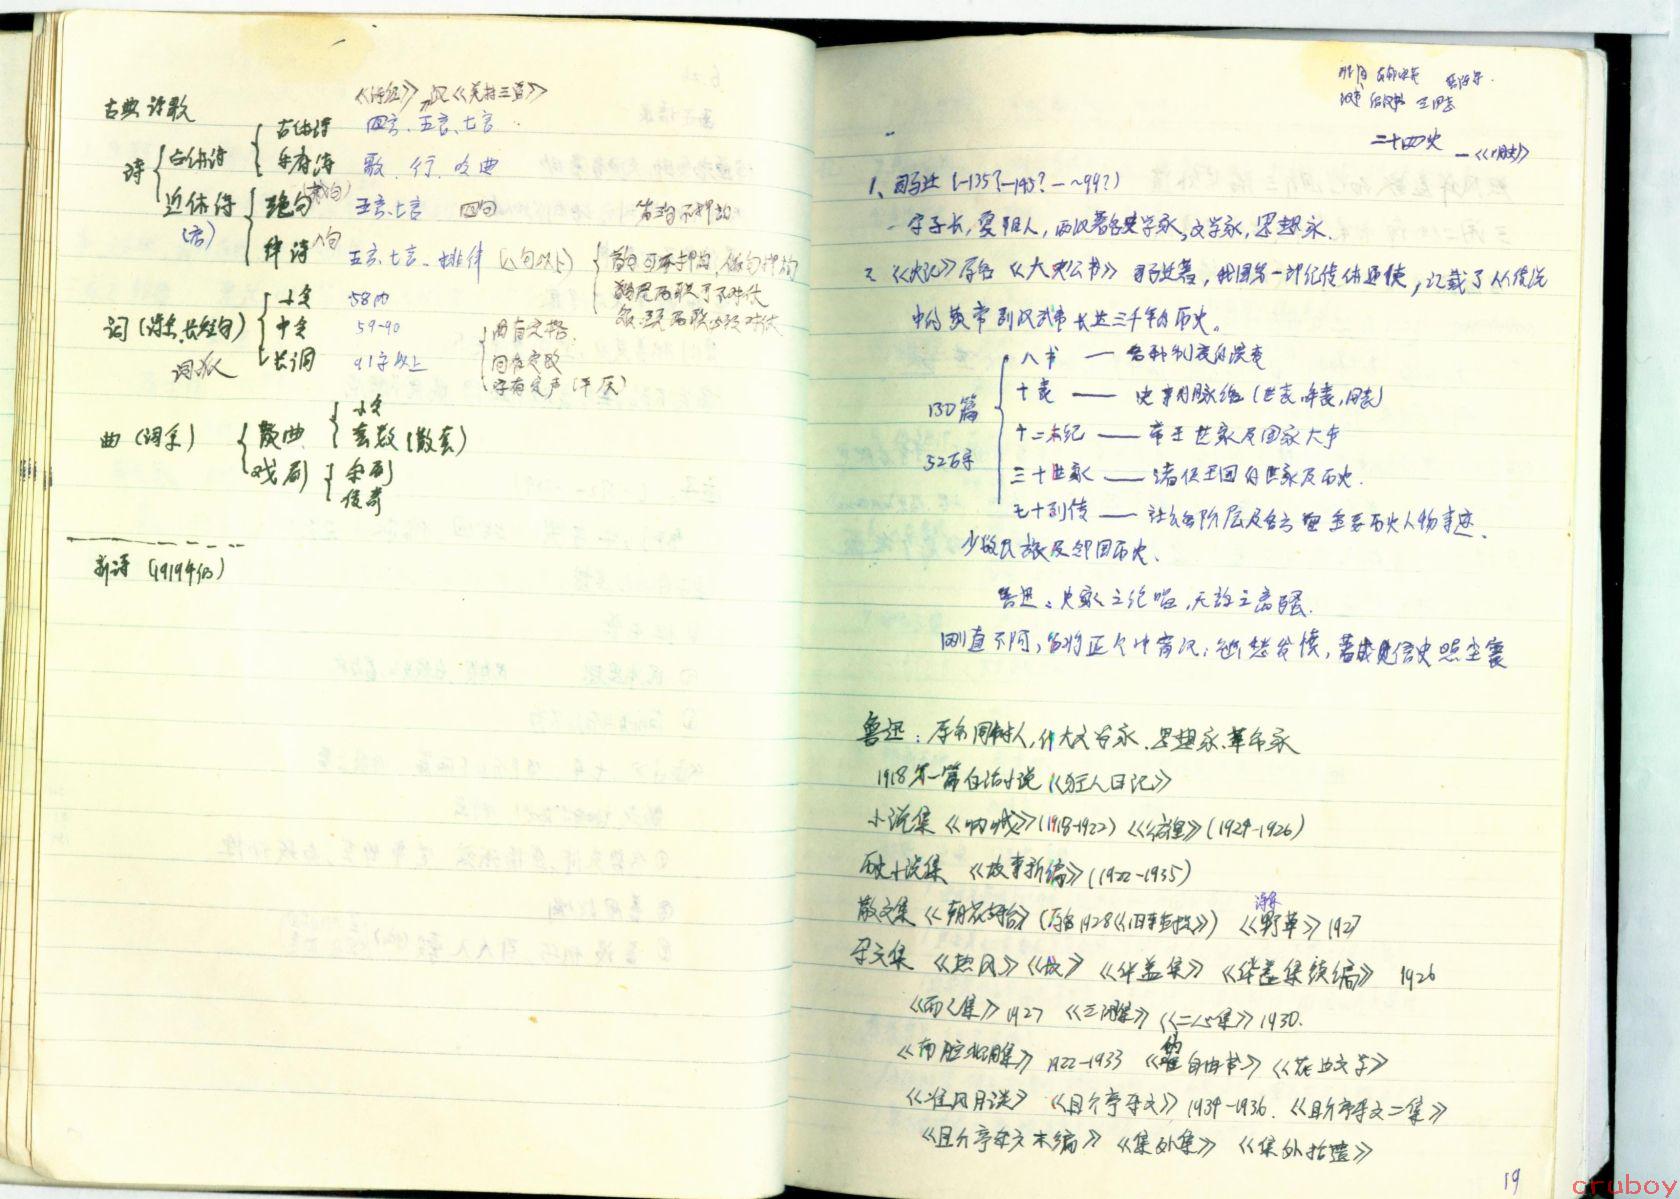 古典诗歌
《诗经》 汉《美
古体诗 四言、五言、七言
诗 古体诗
乐府诗 歌、行、吹曲
近体诗 绝句(截句) 五言、七言 四句 首句不押韵
(唐)
律诗 八句 五言、七言、排律(八句以上) 首句可不押韵,偶句押韵
首尾两联可不对仗
颔、颈两联必须对仗
小令 58内
词(诗余、长短句) 中令 59-90
长调 91字以上
曲有定格
句有定数
字有定声(平仄)
小令
曲(词余) 散曲 套数(散套)
戏剧 杂剧
传奇
新诗(1919年后)
二十四史 —《明史》
1、司马迁(-135?-145? — ~99?)
字子长,夏阳人,西汉著名史学家,文学家,思想家.
2 《史记》原名《太史公书》司马迁著,我国第一部纪传体通史,记载了从传说
中的黄帝到汉武帝长达三千年的历史。
130篇
52万字
八书 — 各种制度的演变
十表 — 史事的脉络(世表、年表、月表)
十二本纪 — 帝王世家及国家大事
三十世家 — 诸侯王国的世家及历史.
七十列传 — 社会各阶层及各方面重要历史人物事迹、
少数民族及邻国历史.
鲁迅:史家之绝唱,无韵之离骚.
刚直不阿,
鲁迅:原名周树人,伟大文学家、思想家、革命家
1918第一篇白话小说《狂人日记》
小说集《呐喊》(1918-1922)《彷徨》(1924-1926)
历史小说集 《故事新编》(1922-1935)
散文集《朝花夕拾》(原名1928《旧事重提》) 诗集《野草》1927
杂文集 《热风》《坟》《华盖集》《华盖集续编》 1926
《而已集》1927 《三闲集》《二心集》1930.
《南腔北调集》1922-1933 《伪自由书》《花边文学》
《准风月谈》 《且介亭杂文》1934-1936. 《且介亭杂文二集》
《且介亭杂文末编》《集外集》《集外拾遗》
19
cruboy